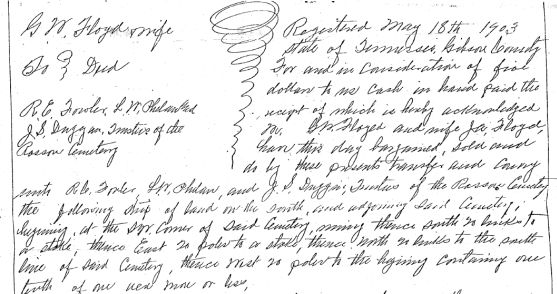 G. W. Floyd & wife
To } Deed
R. E. Fowler, L. W. Phelan and
J. S. Duggan, Trustees of the
Rosson Cemetery
Registered May 18th 1903
State of Tennessee, Gibson County
For and in Consideration of five
dollars to us cash in hand paid the
receipt of which is hereby acknowledged
We, G. W. Floyd and wife Floyd,
have this day bargained, sold and
do by these presents transfer and convey
unto R. E. Fowler, L. W. Phelan, and J. S. Duggan, Trustees of the Rosson Cemetery
the following strip of land on the south, and adjoining said Cemetery;
Beginning, at the S.W. Corner of said Cemetery, running thence south 20 links to
a stake, thence East 20 poles to a stake, thence north 20 links to the south
line of said Cemetery, thence west 20 poles to the beginning containing one
tenth of one acre more or less,